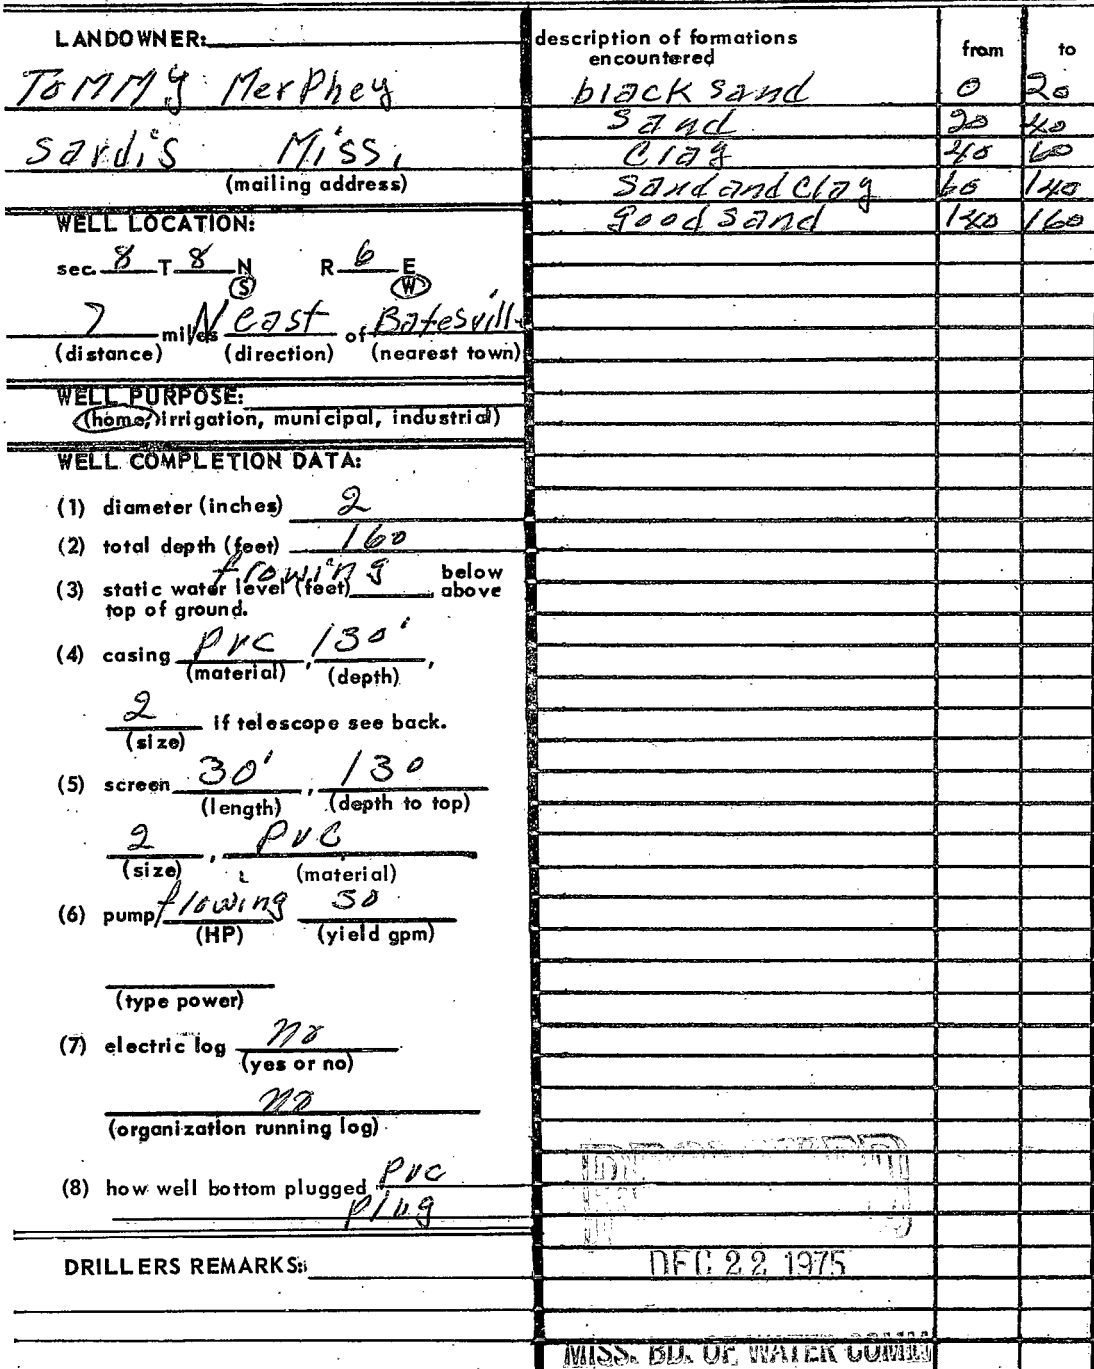 LANDOWNER:
Tommy Merphey
Sardis Miss.
(mailing address)
WELL LOCATION:
sec. 8 T 8 N R 6 E
S W
7 miles N east of Batesville
(distance) (direction) (nearest town)
WELL PURPOSE:
(home, irrigation, municipal, industrial)
WELL COMPLETION DATA:
(1) diameter (inches) 2
(2) total depth (feet) 160
flowing below
(3) static water level (feet) above
top of ground.
(4) casing PVC, 130',
(material) (depth)
2 if telescope see back.
(size)
(5) screen 30', 130
(length) (depth to top)
2, PVC
(size) (material)
(6) pump flowing 50
(HP) (yield gpm)
(type power)
(7) electric log no
(yes or no)
no
(organization running log)
(8) how well bottom plugged PVC
plug
DRILLERS REMARKS:
description of formations from to
encountered
black sand 0 20
Sand 20 40
Clay 40 60
Sand and Clay 60 140
good sand 140 160
RECEIVED
DEC 22 1975
MISS. BD. OF WATER COMM